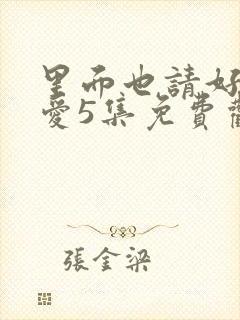 里而也請好
愛5集免費
張金梁